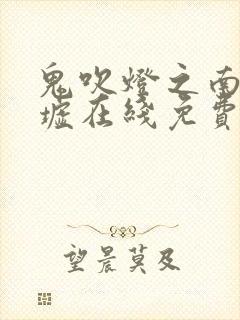 鬼吹燈之南
墟在綫免費
望晨莫及